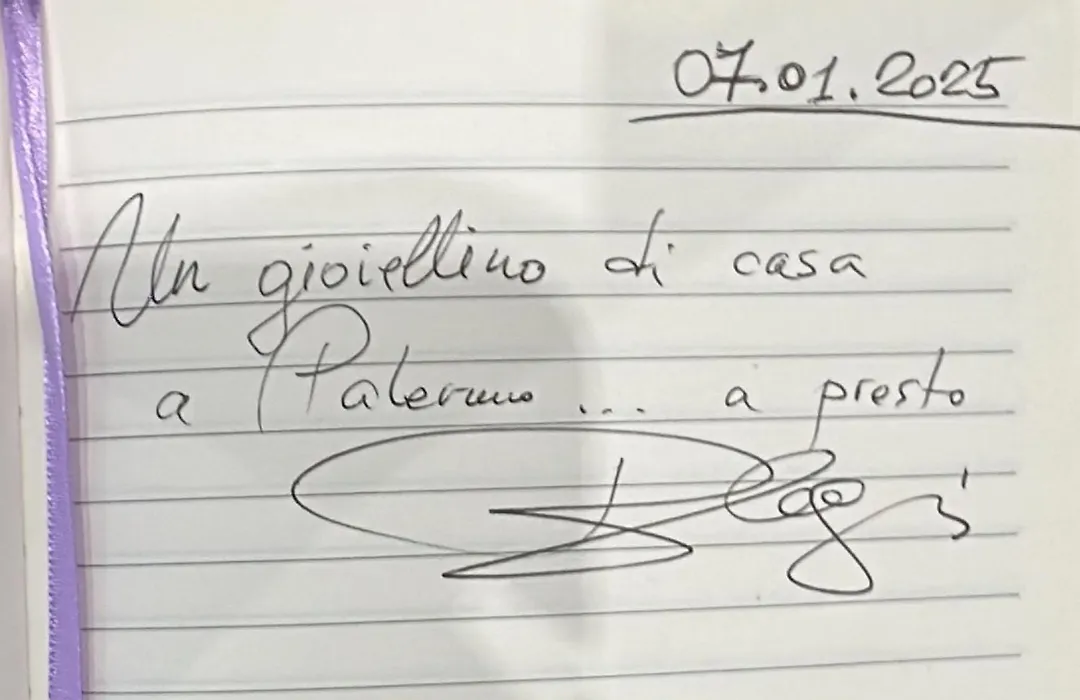 07.01.2025
Un gioiellino di casa
a Palermo ... a presto